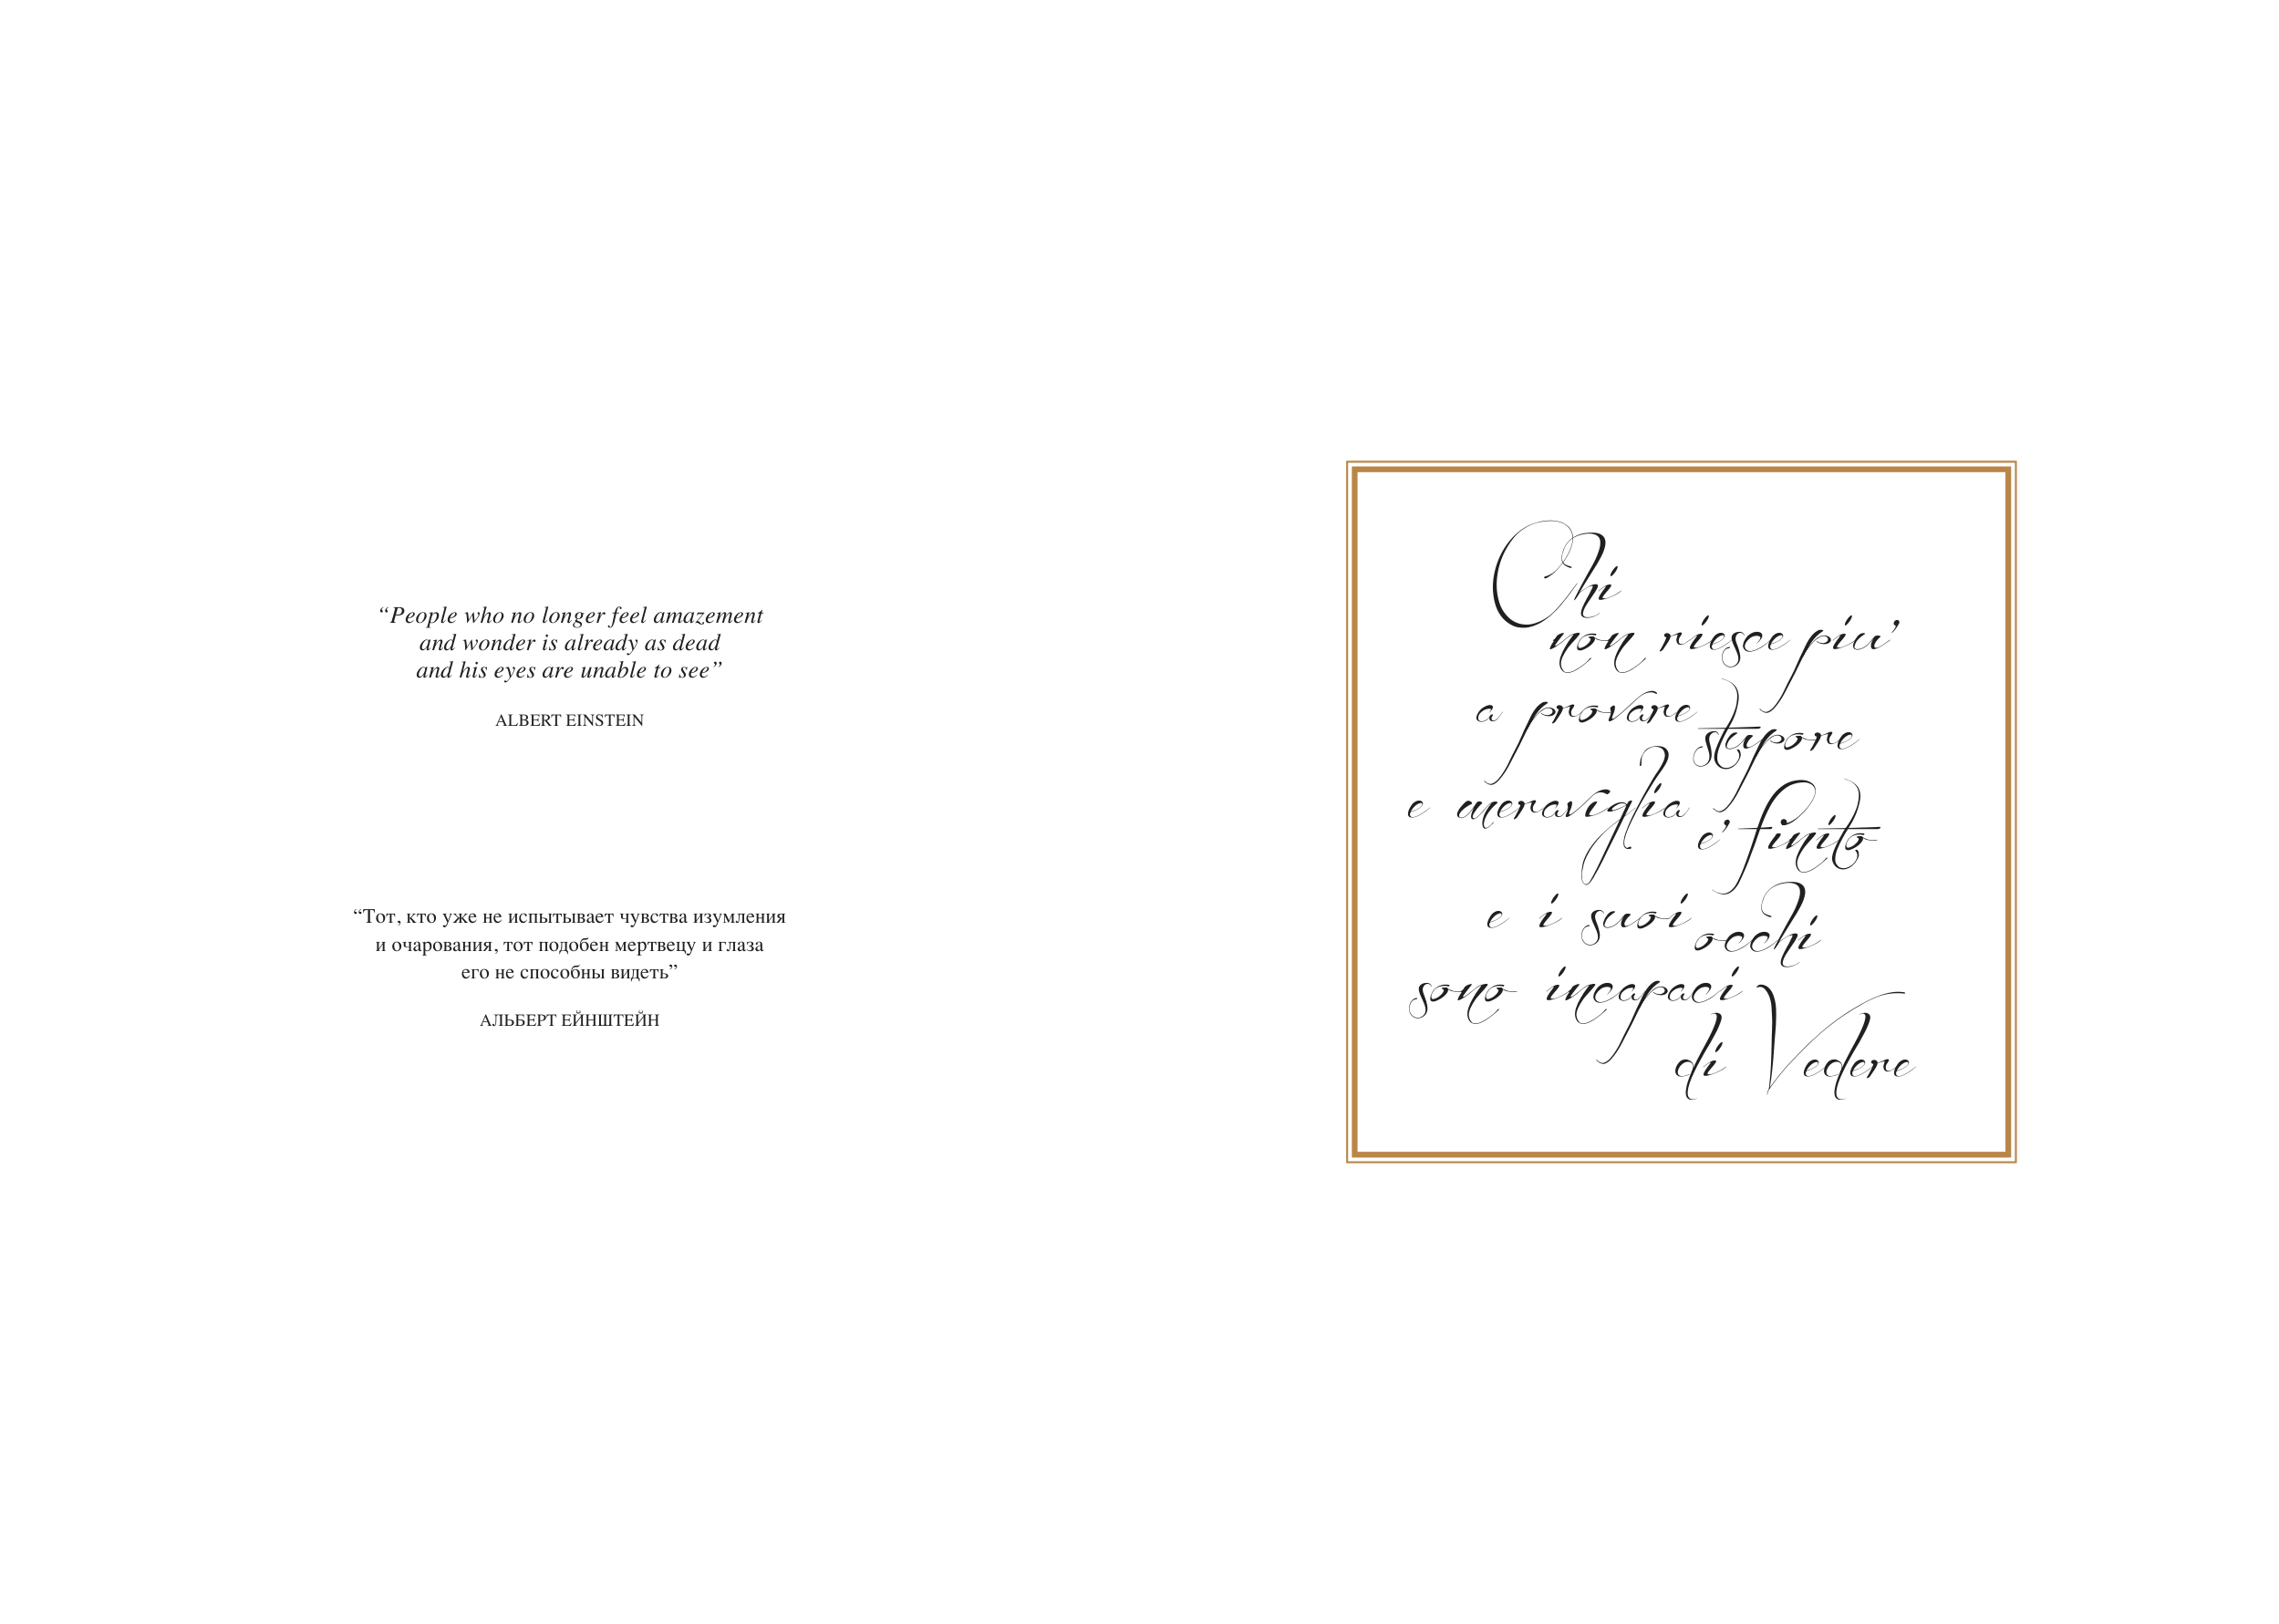 “People who no longer feel amazement
and wonder is already as dead
and his eyes are unable to see”
ALBERT EINSTEIN
“Тот, кто уже не испытывает чувства изумления
и очарования, тот подобен мертвецу и глаза
его не способны видеть”
АЛЬБЕРТ ЕЙНШТЕЙН
Chi
non riesce piu’
a provare stupore
e meraviglia e’ finito
e i suoi occhi
sono incapaci
di Vedere